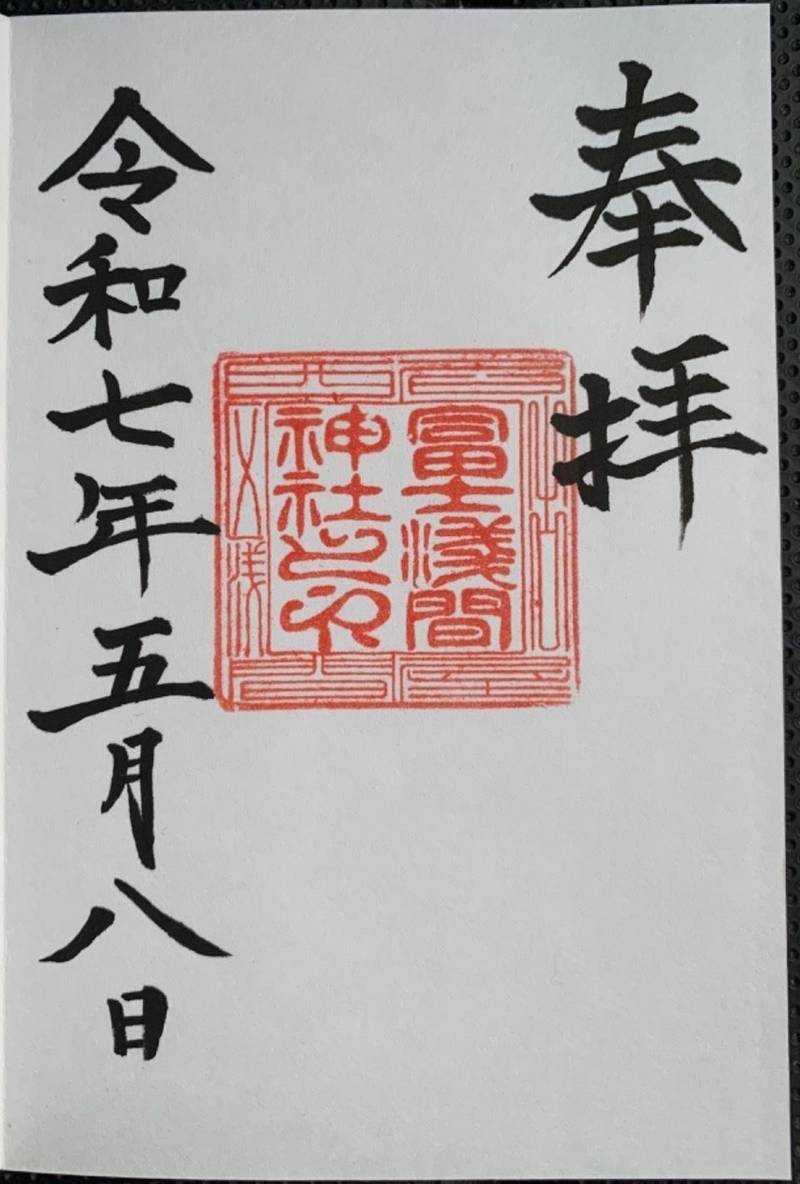 奉拝
富士浅間
神社之印
令和七年五月八日